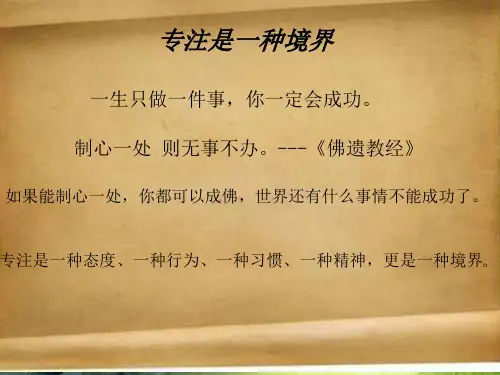 专注是一种境界
一生只做一件事，你一定会成功。
制心一处 则无事不办。---《佛遗教经》
如果能制心一处，你都可以成佛，世界还有什么事情不能成功了。
专注是一种态度、一种行为、一种习惯、一种精神，更是一种境界。